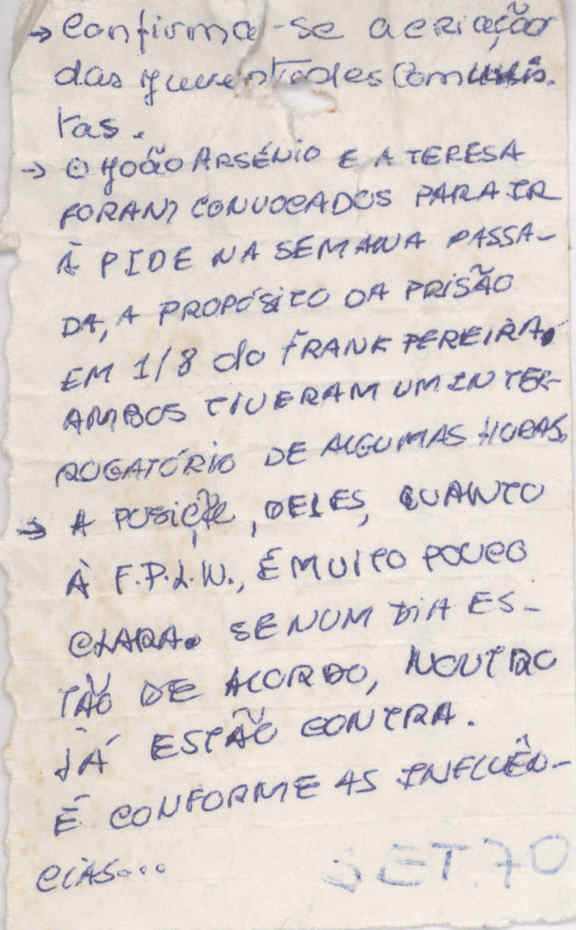 → Confirma-se a criação
das juventudes Comunis-
tas.
→ O João ARSÉNIO E A TERESA
FORAM CONVOCADOS PARA IR
À PIDE NA SEMANA PASSA-
DA, A PROPÓSITO DA PRISÃO
EM 1/8 do FRANK PEREIRA.
AMBOS TIVERAM UM INTER-
ROGATÓRIO DE ALGUMAS HORAS.
→ A POSIÇÃO, DELES, QUANTO
À F.P.L.N., É MUITO POUCO
CLARA. SE NUM DIA ES-
TÃO DE ACORDO, NOUTRO
JÁ ESTÃO CONTRA.
É CONFORME AS INFLUÊN-
CIAS...
SET.70